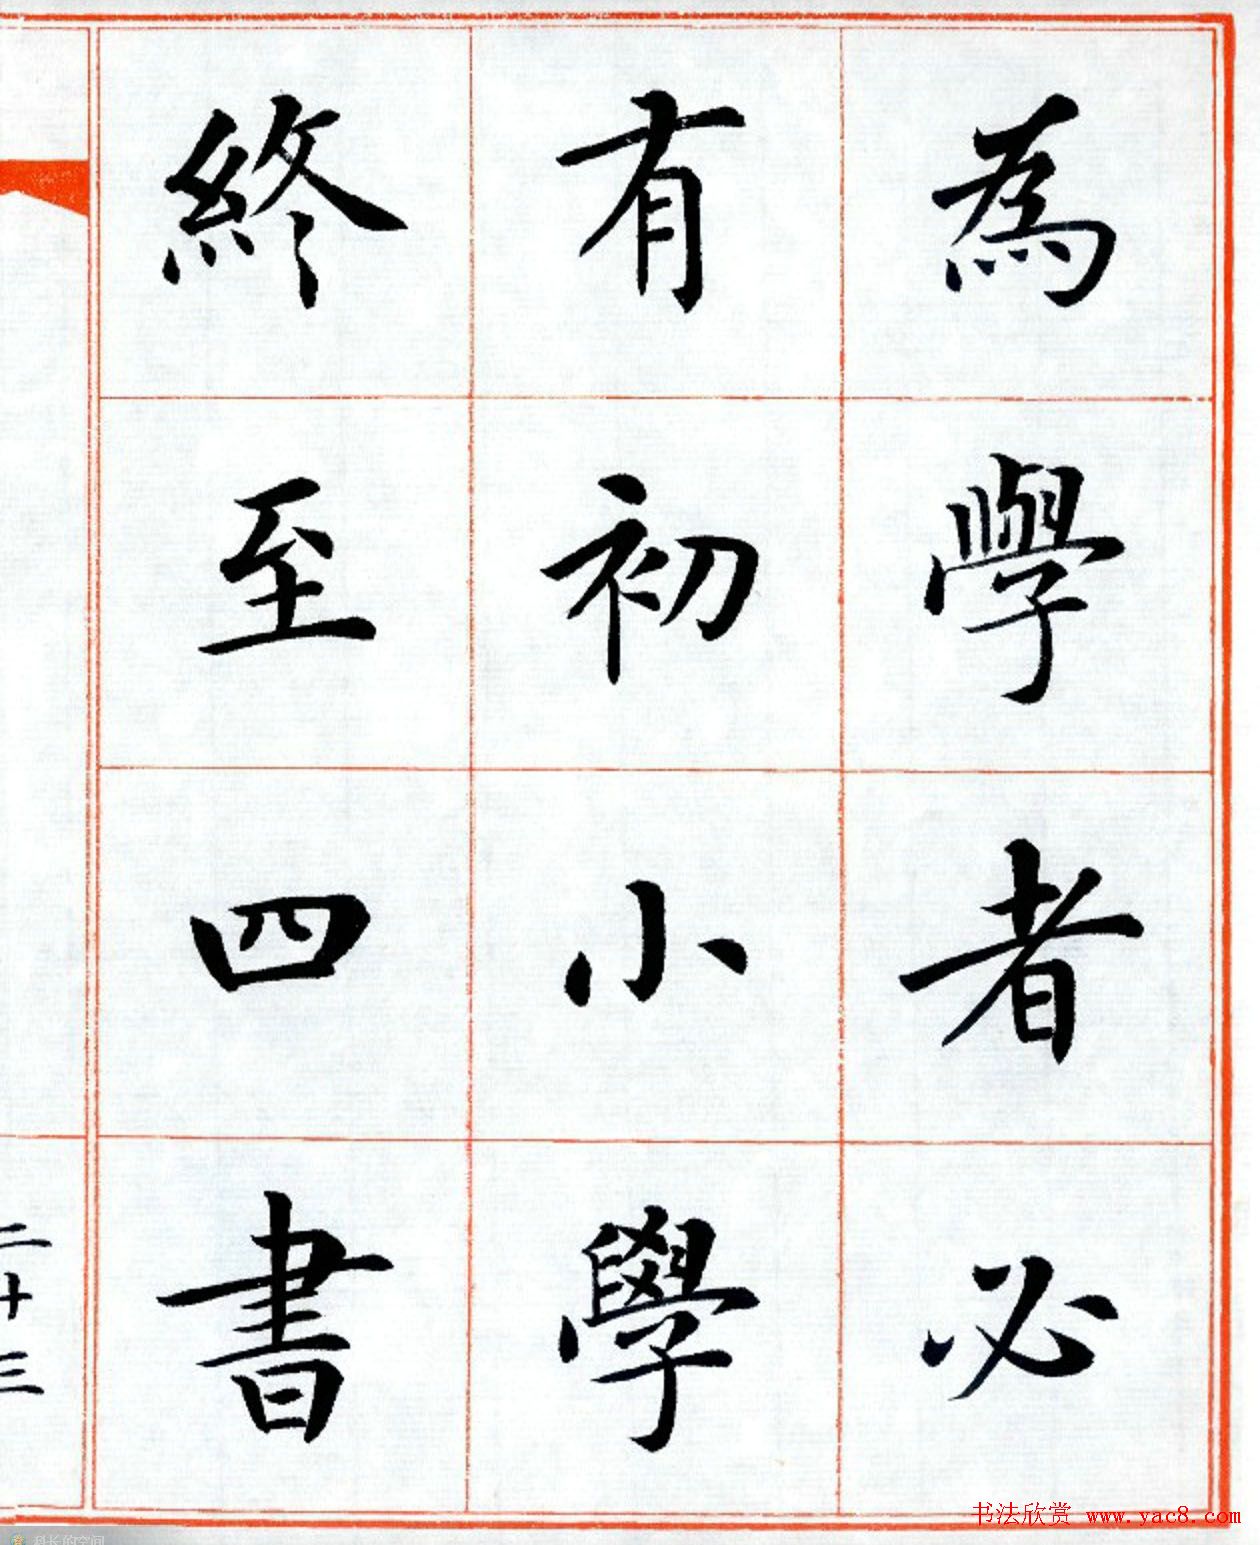 為學者必
有初小學
終至四書
二十三
书法欣赏 www.yac8.com
科长的空间